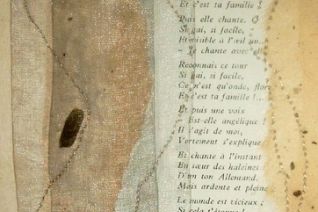 Et c'est ta famille !
Puis elle chante. O
Si gai, si facile,
Et visible à l'œil
— Je chante avec
Reconnais ce tour
Si gai, si facile,
Ce n'est qu'onde, flo
Et c'est ta famille !..
Et puis une voix
— Est-elle angélique
Il s'agit de moi,
Vertement s'explique
Et chante à l'instant
En sœur des haleines
D'un ton Allemand,
Mais ardente et pleine
Le monde est vicieux ;